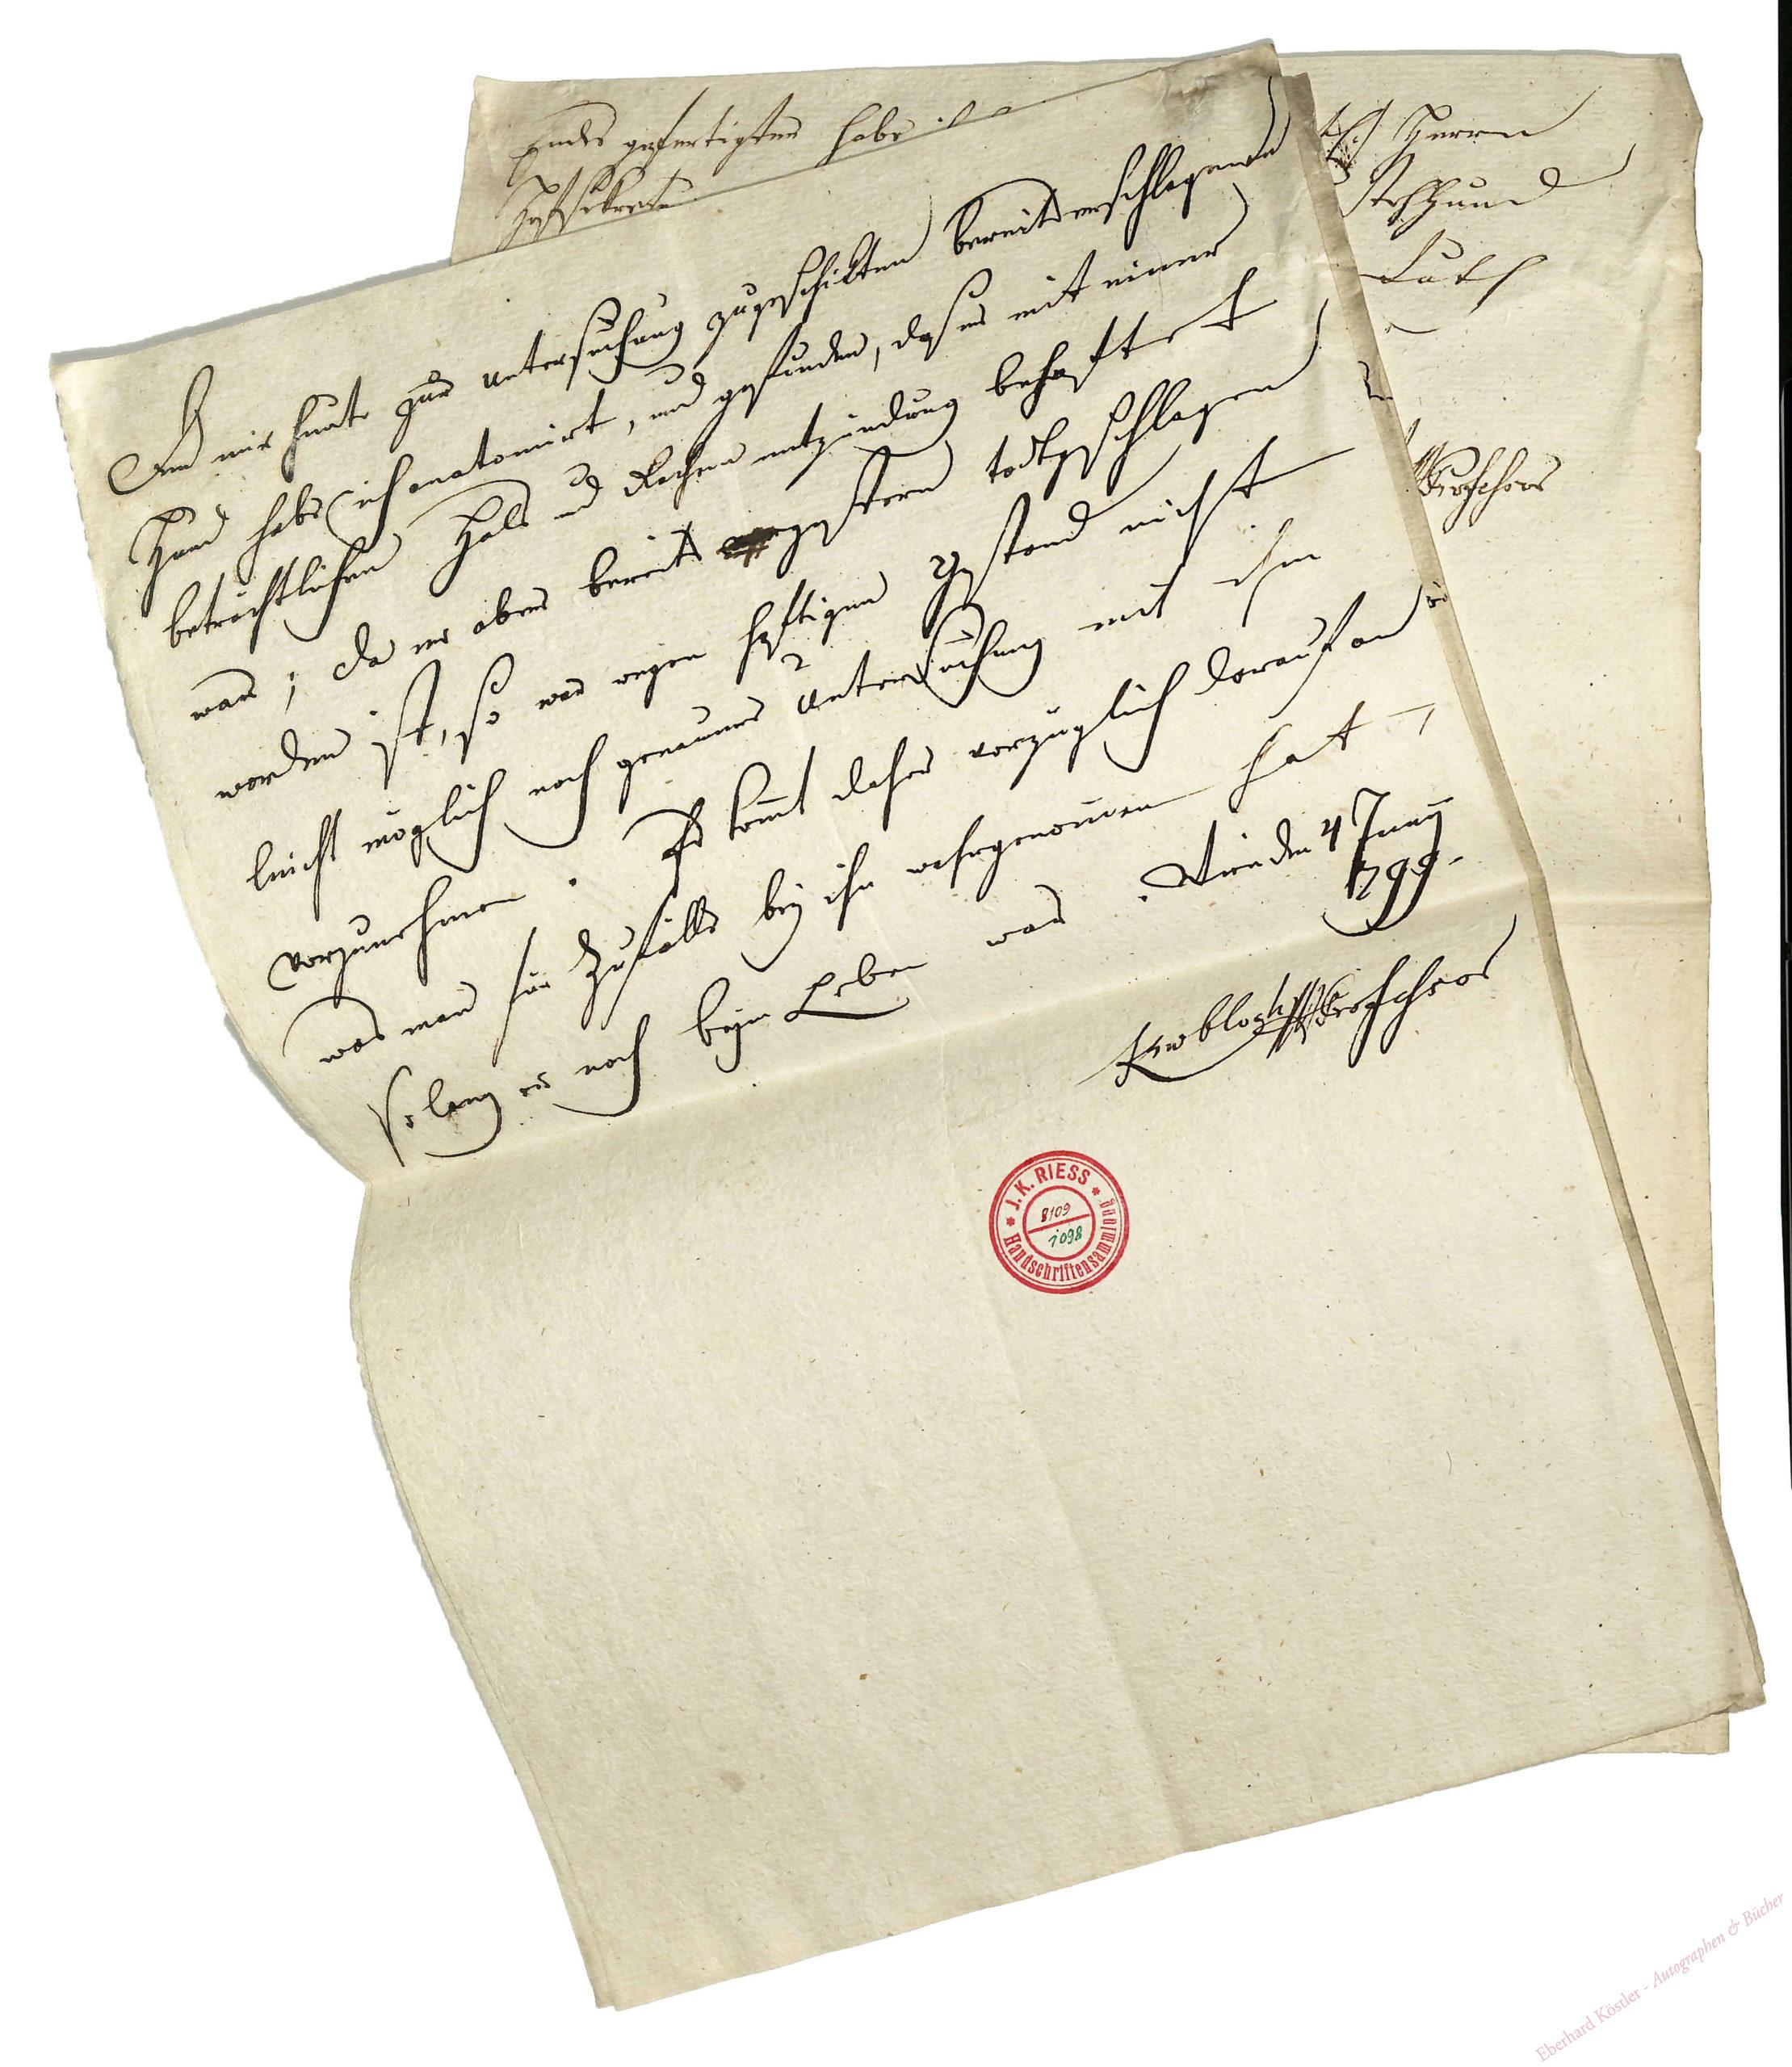 Endes gefertigter habe
Herrn
Hund
Den mir heute zur Untersuchung zugeschikten bereits erschlagenen
Hund habe ich anatomirt, und gefunden, daß er mit einer
beträchtlichen Hals und Rachen entzündung behaftet
war; da er aber bereits gestern todtgeschlagen
worden ist, so war wegen heftigen Gestand nicht
leicht möglich noch genauere Untersuchung mit ihm
vorzunehmen. Es kom̄t daher vorzüglich darauf an
was man für Zufälle bey ihm wahrgenom̄en hat,
solang er noch beym Leben war. Wien den 4 Juny
799.
J. K. RIESS
8109
7098
Handschriftensammlung
Eberhard Köstler - Autographen & Bücher